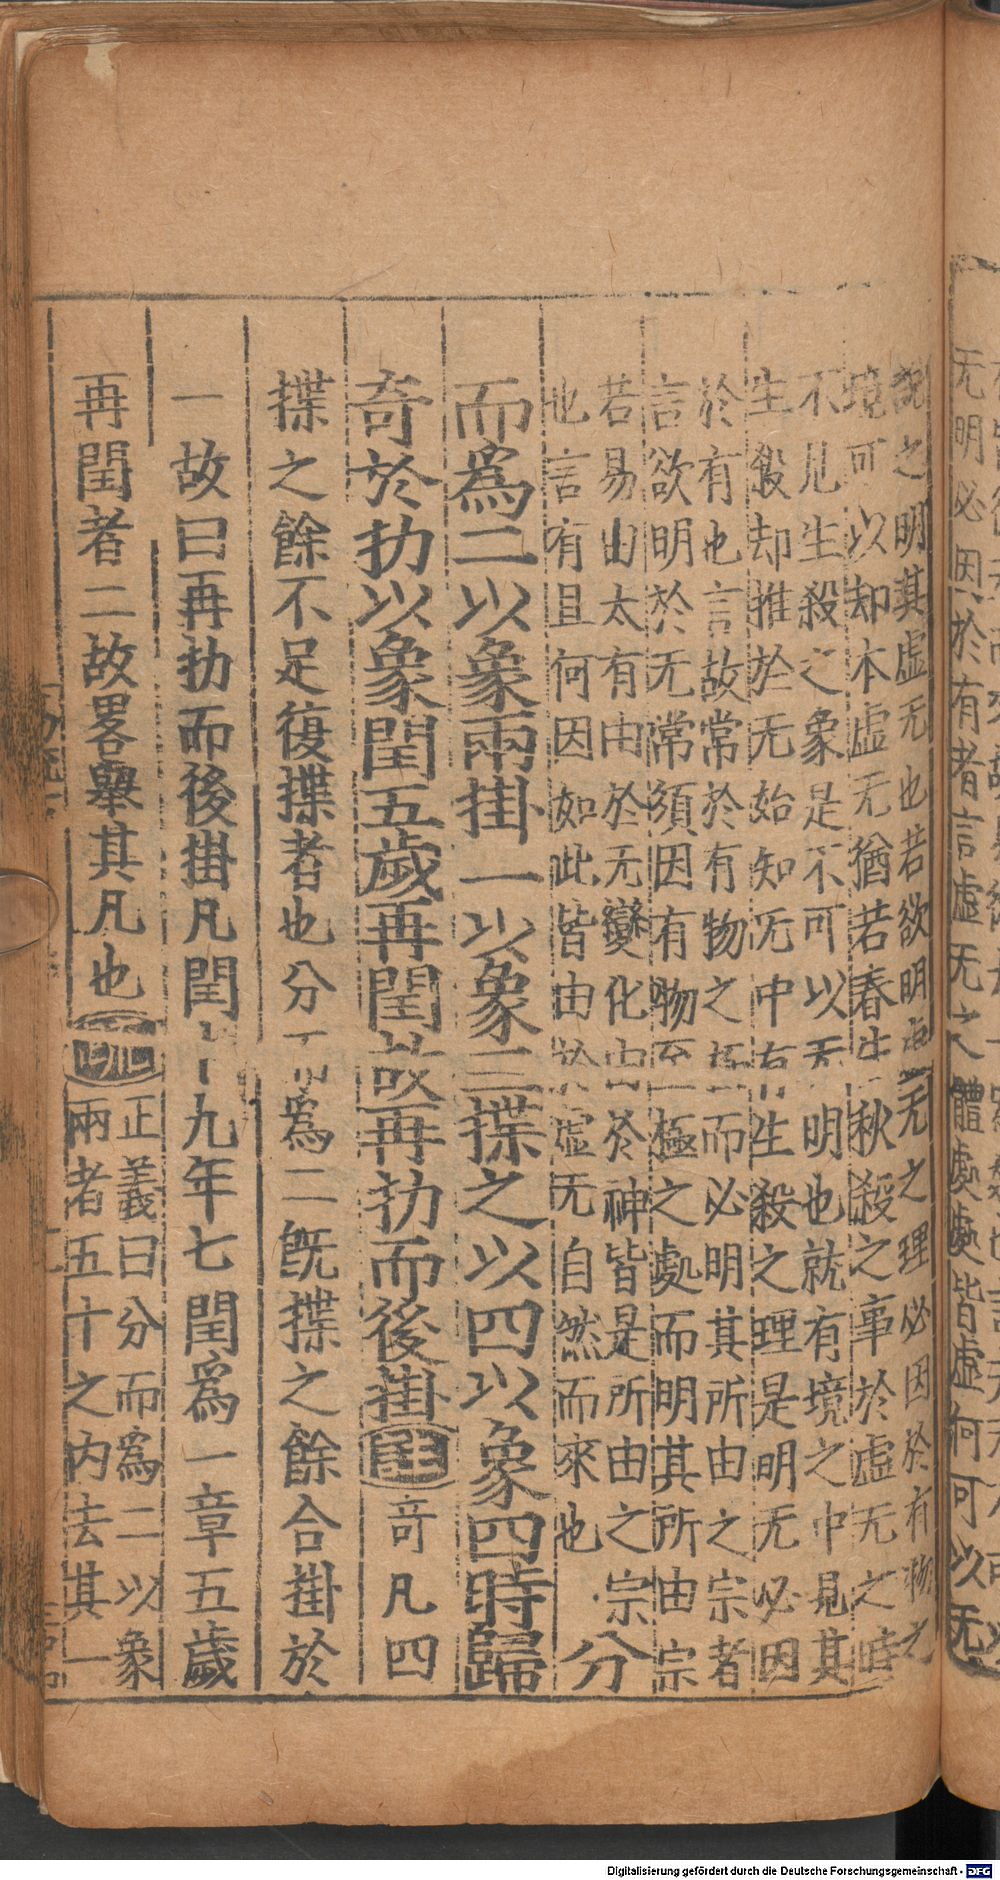 无明必因於有者言虛无之體處處皆虛何可以无
說之明其虛无也若欲明虛无之理必因於有物之
境可以却本虛无猶若春生秋殺之事於虛无之時
不見生殺之象是不可以无明也就有境之中見其
生殺却推於无始知无中有生殺之理是明无必因
於有也言故常於有物之極而必明其所由之宗者
言欲明於无常須因有物至極之處而明其所由宗
若易由太有由於无變化由於神皆是所由之宗
也言有且何因如此皆由於虛无自然而來也
分
而爲二以象兩掛一以象三揲之以四以象四時歸
奇於扐以象閏五歲再閏故再扐而後掛註奇凡四
揲之餘不足復揲者也分而爲二旣揲之餘合掛於
一故曰再扐而後掛凡閏十九年七閏爲一章五歲
再閏者二故畧舉其凡也疏
正義曰分而爲二以象
兩者五十之内去其一
Digitalisierung gefördert durch die Deutsche Forschungsgemeinschaft - DFG